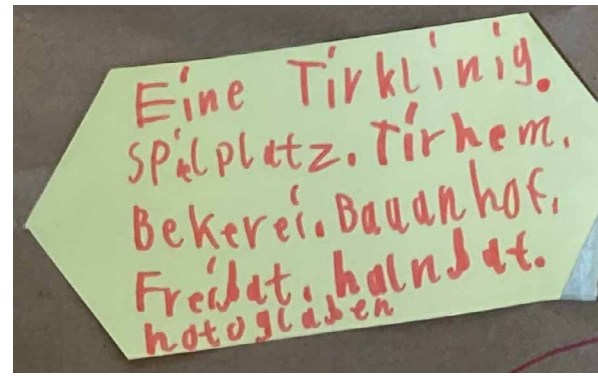 Eine Tirklinig.
Spilplatz. Tirhem.
Bekerei. Bauanhof.
Freibat. halnbat.
hotogladen